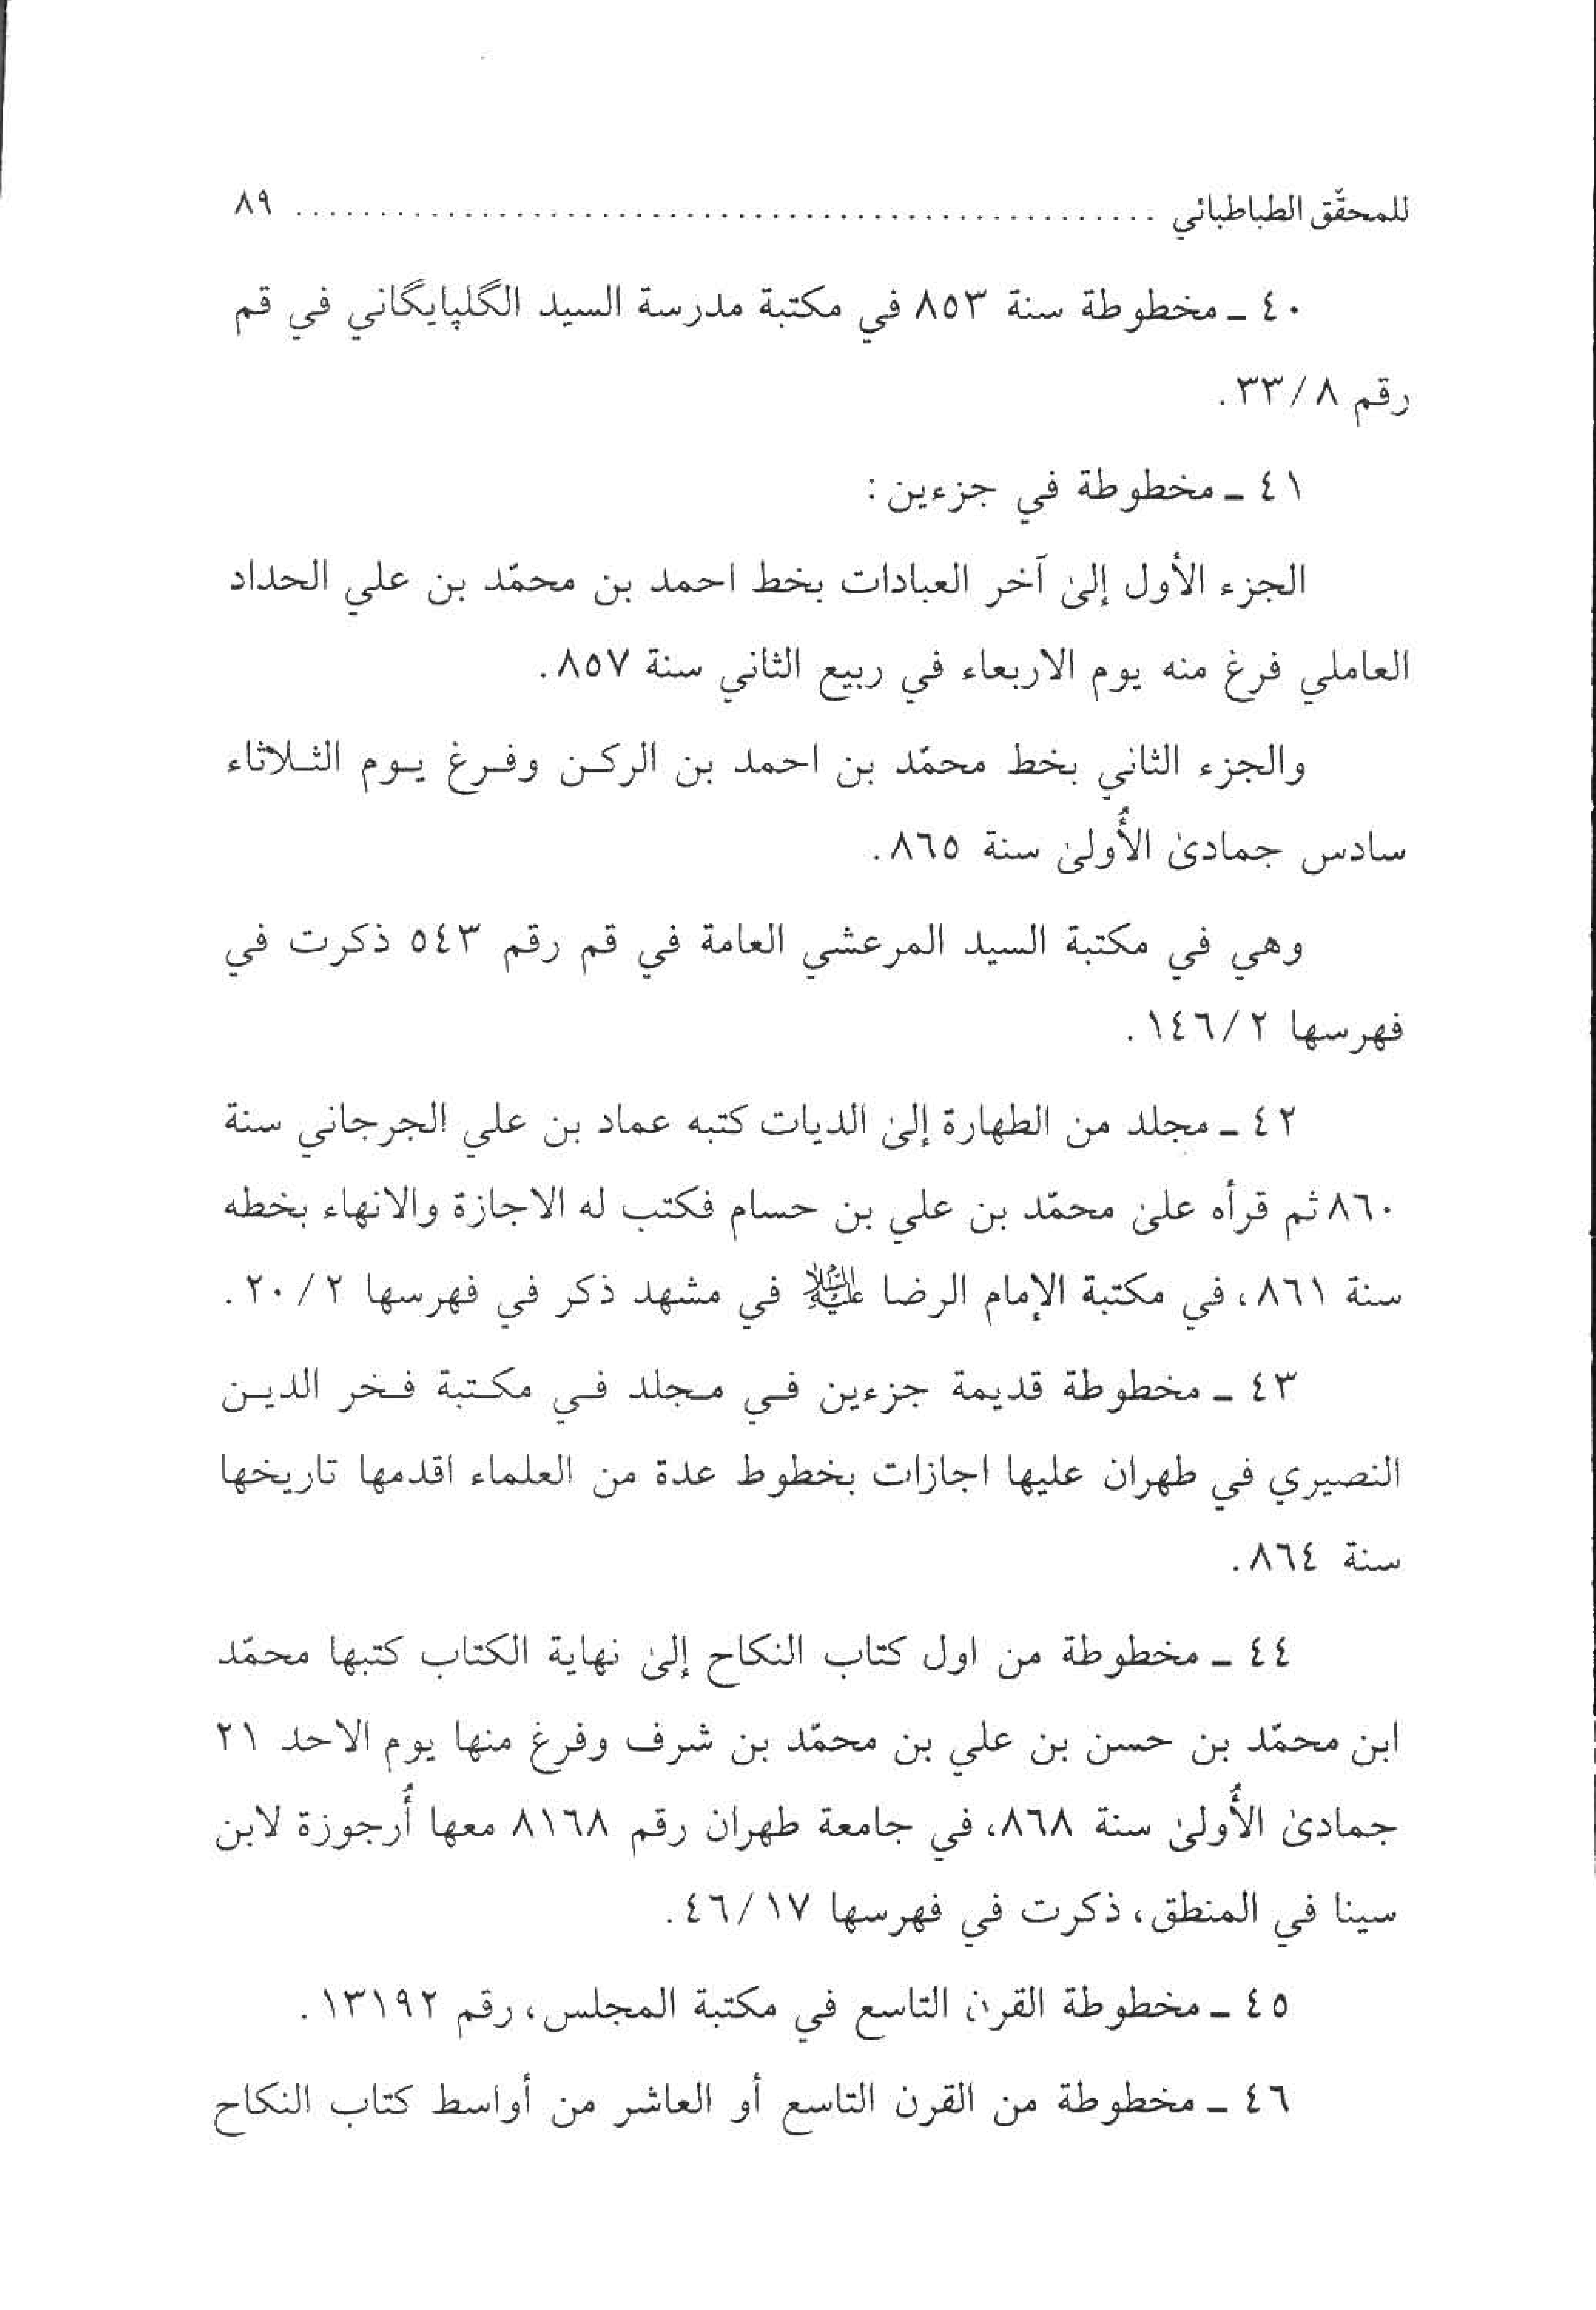 للمحقّق الطباطبائي ..................................................... ٨٩
٤٠ ـ مخطوطة سنة ٨٥٣ في مكتبة مدرسة السيد الگلپايگاني في قم
رقم ٣٣/٨.
٤١ ـ مخطوطة في جزءين:
الجزء الأول إلىٰ آخر العبادات بخط احمد بن محمّد بن علي الحداد
العاملي فرغ منه يوم الاربعاء في ربيع الثاني سنة ٨٥٧.
والجزء الثاني بخط محمّد بن احمد بن الركن وفرغ يوم الثلاثاء
سادس جمادىٰ الأُولىٰ سنة ٨٦٥.
وهي في مكتبة السيد المرعشي العامة في قم رقم ٥٤٣ ذكرت في
فهرسها ١٤٦/٢.
٤٢ ـ مجلد من الطهارة إلىٰ الديات كتبه عماد بن علي الجرجاني سنة
٨٦٠ ثم قرأه علىٰ محمّد بن علي بن حسام فكتب له الاجازة والانهاء بخطه
سنة ٨٦١، في مكتبة الإمام الرضا عليه السلام في مشهد ذكر في فهرسها ٢٠/٢.
٤٣ ـ مخطوطة قديمة جزءين في مجلد في مكتبة فخر الدين
النصيري في طهران عليها اجازات بخطوط عدة من العلماء اقدمها تاريخها
سنة ٨٦٤.
٤٤ ـ مخطوطة من اول كتاب النكاح إلىٰ نهاية الكتاب كتبها محمّد
ابن محمّد بن حسن بن علي بن محمّد بن شرف وفرغ منها يوم الاحد ٢١
جمادىٰ الأُولىٰ سنة ٨٦٨، في جامعة طهران رقم ٨١٦٨ معها أُرجوزة لابن
سينا في المنطق، ذكرت في فهرسها ٤٦/١٧.
٤٥ ـ مخطوطة القرن التاسع في مكتبة المجلس، رقم ١٣١٩٢.
٤٦ ـ مخطوطة من القرن التاسع أو العاشر من أواسط كتاب النكاح